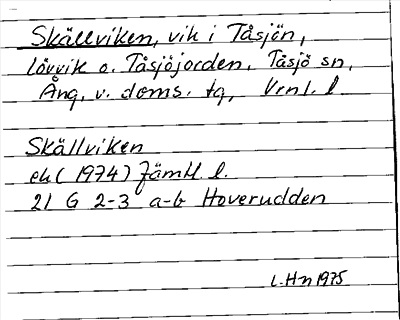 Skällviken, vik i Tåsjön,
Lövvik o. Tåsjöjorden, Tåsjö sn,
Ång. v. doms. tg, Vrnl. l.
Skällviken
ek (1974) Jämtl. l.
21 G 2-3 a-b Hoverudden
L. Hn 1975